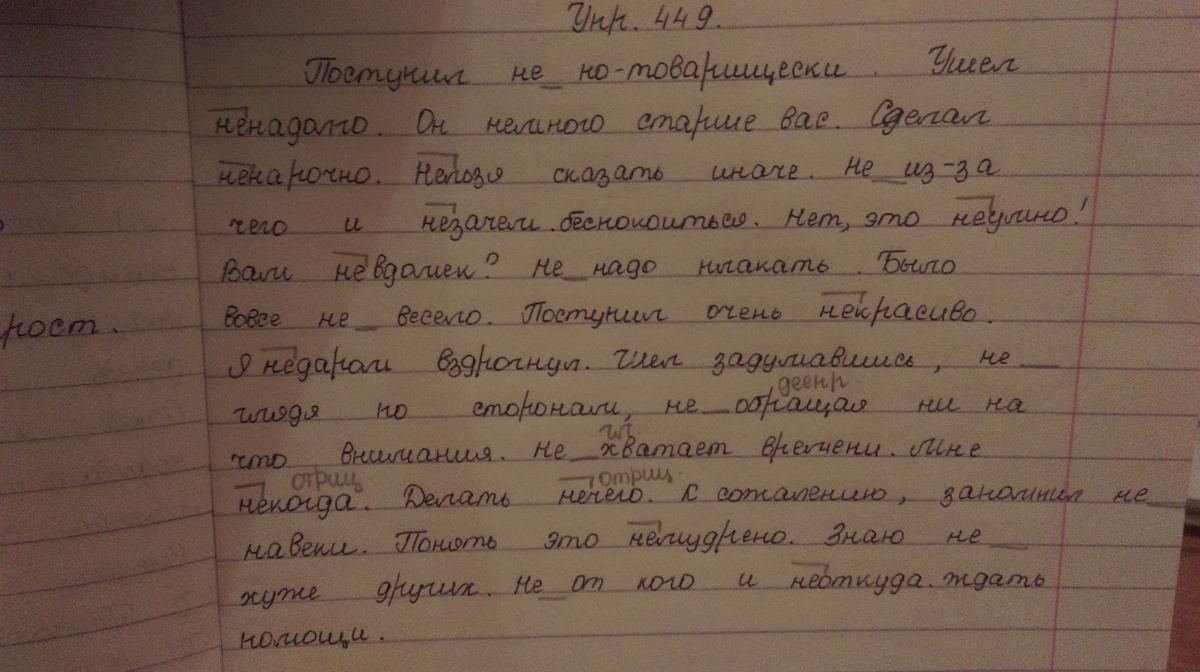 Упр. 449.
Поступил не по-товарищески. Ушел
ненадолго. Он немного старше вас. Сделал
ненарочно. Нельзя сказать иначе. Не из-за
чего и незачем беспокоиться. Нет, это неумно!
Вам невдомек? Не надо плакать. Было
рост.
вовсе не весело. Поступил очень некрасиво.
Я недаром вздрогнул. Шел задумавшись, не
деепр.
глядя по сторонам, не обращая ни на
гл.
что внимания. Не хватает времени. Мне
отриц. отриц.
некогда. Делать нечего. К сожалению, запомнил не
навеки. Понять это немудрено. Знаю не
хуже других. Не от кого и неоткуда ждать
помощи.